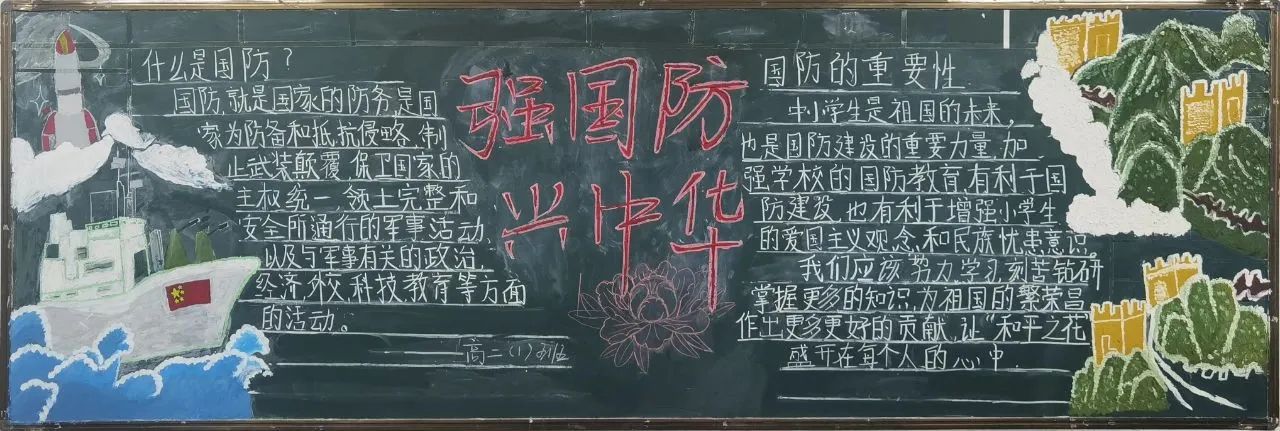 什么是国防？
国防,就是国家的防务,是国
家为防备和抵抗侵略、制
止武装颠覆,保卫国家的
主权统一、领土完整和
安全所通行的军事活动、
以及与军事有关的政治、
经济、外交、科技、教育等方面
的活动。
高二（1）班
强国防
兴中华
国防的重要性
中小学生是祖国的未来,
也是国防建设的重要力量,加
强学校的国防教育,有利于国
防建设,也有利于增强小学生
的爱国主义观念,和民族忧患意识。
我们应该努力学习,刻苦钻研
掌握更多的知识,为祖国的繁荣昌
作出更多更好的贡献,让“和平之花”
盛开在每个人的心中.